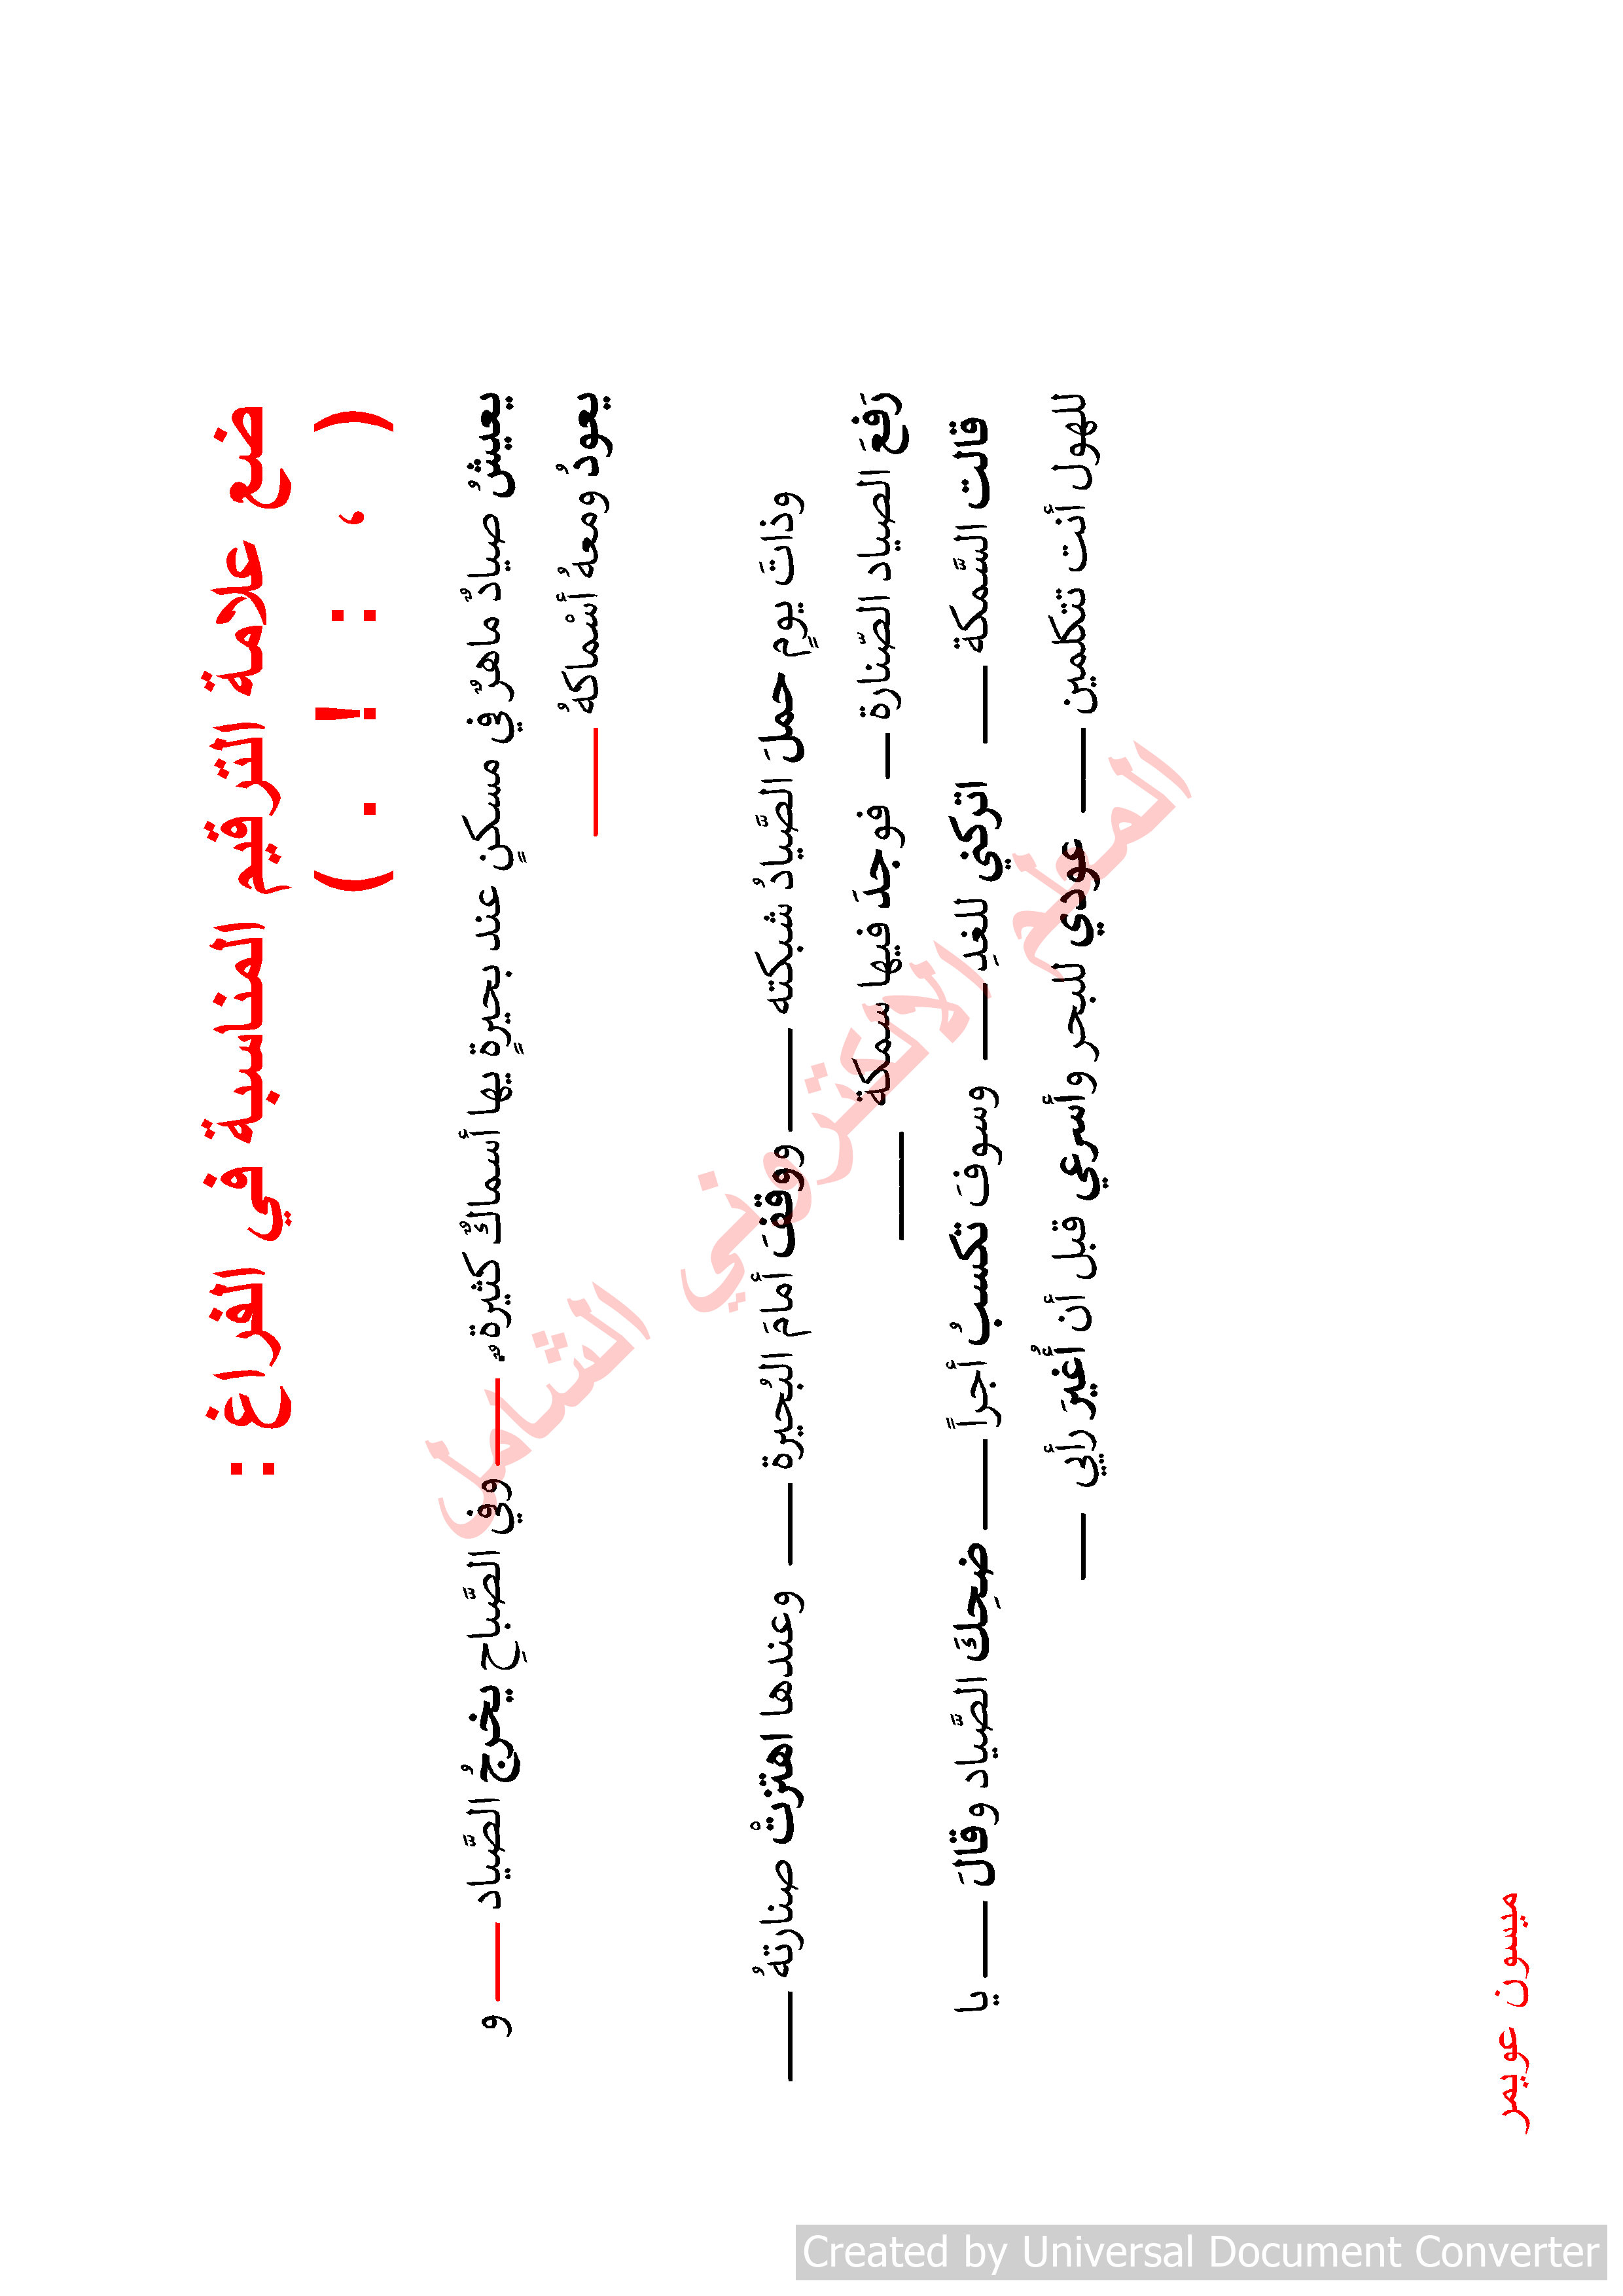 ضع علامة الترقيم المناسبة في الفراغ :
( ، : ! . )
يعيشُ صيادٌ ماهرٌ في مسكنٍ عند بحيرةٍ بها أسماكٌ كثيرةٌ. ــــ وفي الصَّباحِ يخرجُ الصَّياد ــــ و
يعودُ ومعهُ أسْماكهُ ــــ
وذاتَ يومٍ حملَ الصَّيادُ شبكته ــــ ووقفَ أمامَ البُحيرة ــــ وعندها اهتزتْ صنارتهُ ــــ
رَفعَ الصياد الصّنارة ــــ فوجدَ فيها سمكة ــــ
قالت السَّمكة ــــ اتركني للغدِ ــــ وسوفَ تكسبُ أجراً ــــ ضحِكَ الصَّياد وقالَ ــــ يا
للهول أنت تتكلمين ــــ عودي للبحر وأسرعي قبل أن أُغيرَ رأيي ــــ
المعلم الالكتروني الشامل
ميسون عويمر
Created by Universal Document Converter